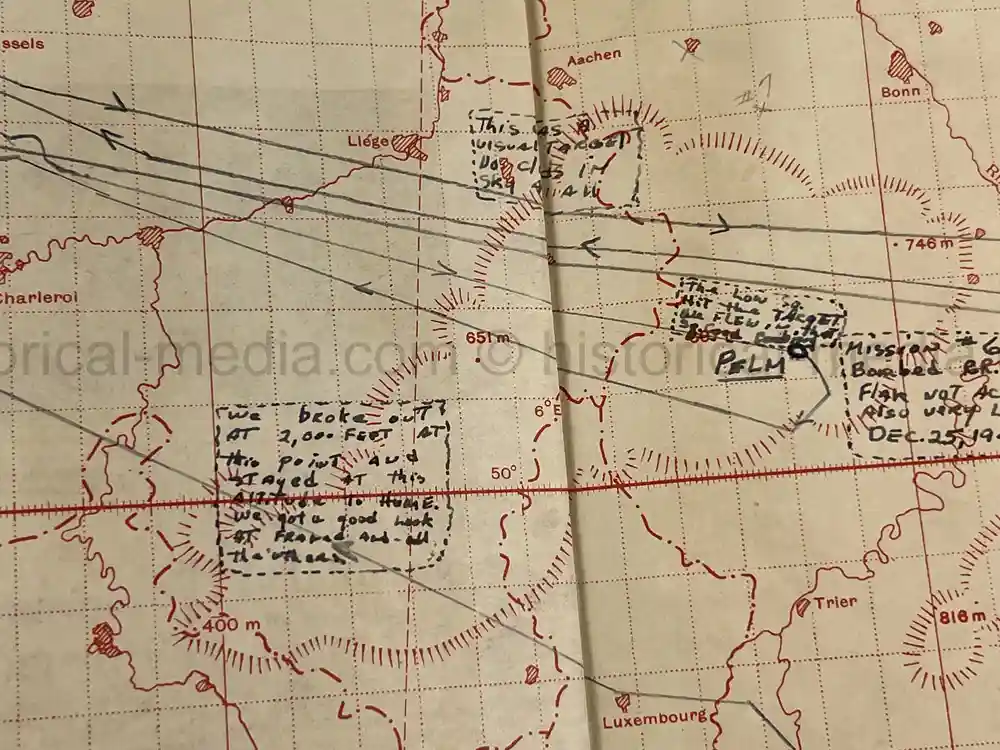 ssels
Aachen
#1
Bonn
Liége
This was a
visual TARGET
No clds in
SKy AT All
746 m
Charleroi
The Low sq.
Hit the TARGET
we FLEW in the
orical-media.com © historical-media
651 m
PELM
Mission #6
Bombed BR.
Flak not Ac
Also very L
DEC. 25, 19
6° E
we broke out
AT 2,000 FEET AT
this point and
STAYed AT this
Altitude to HOME.
We got a good look
AT FRANCE And all
the others.
50°
Trier
400 m
816 m
Luxembourg